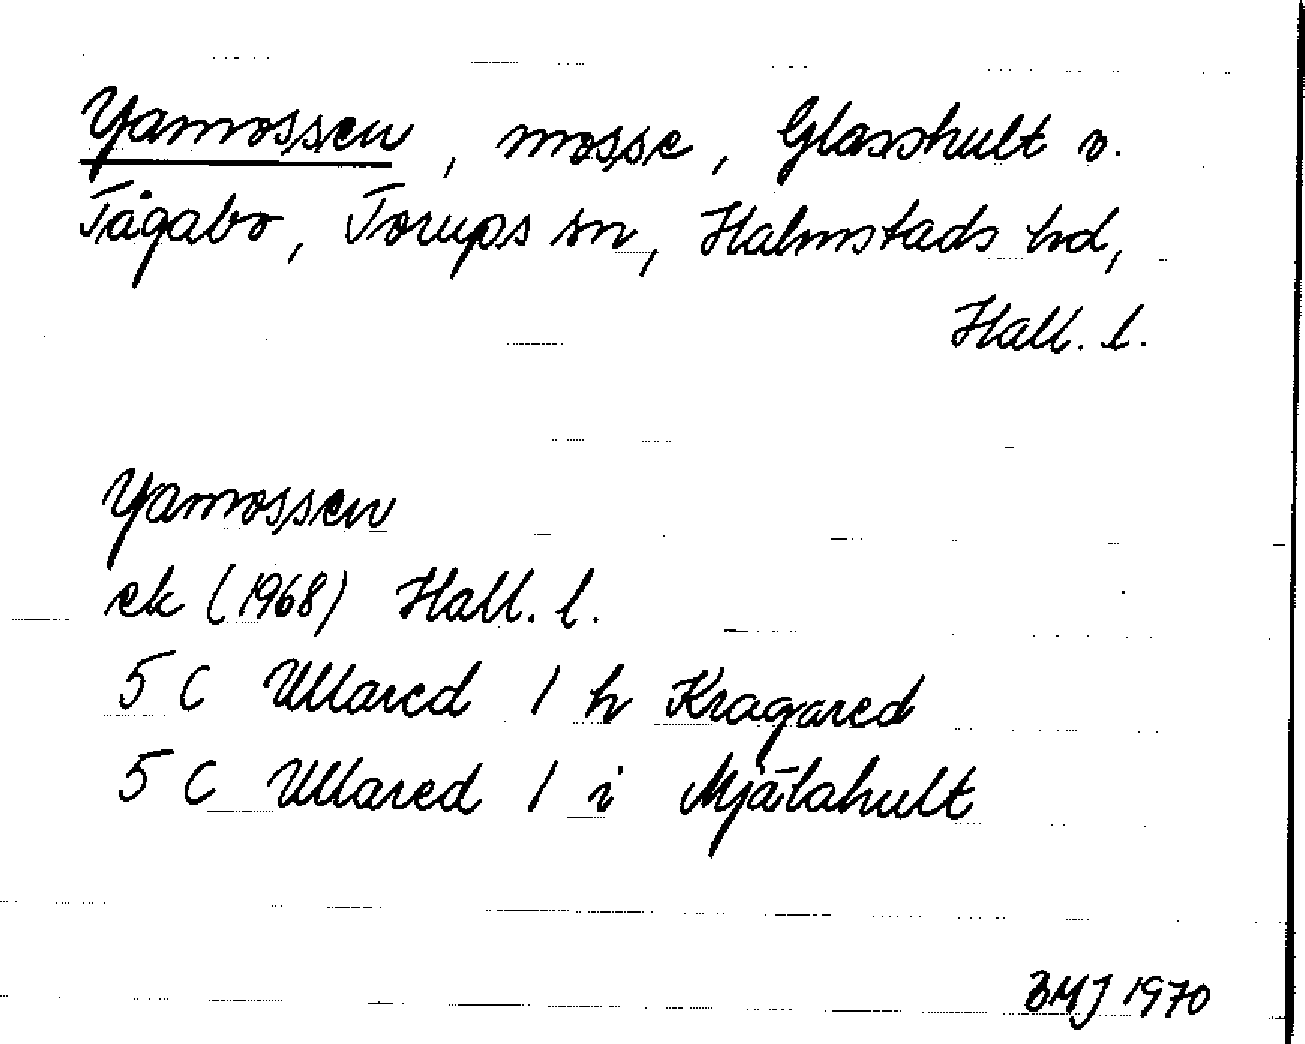 Yamossen, mosse, Glasshult o.
Tågabo, Torups sn, Halmstads hd,
Hall. l.
Yamossen
ek (1968) Hall. l.
5 C Ullared 1 h Kragared
5 C Ullared 1 i Mjälahult
BMJ 1970